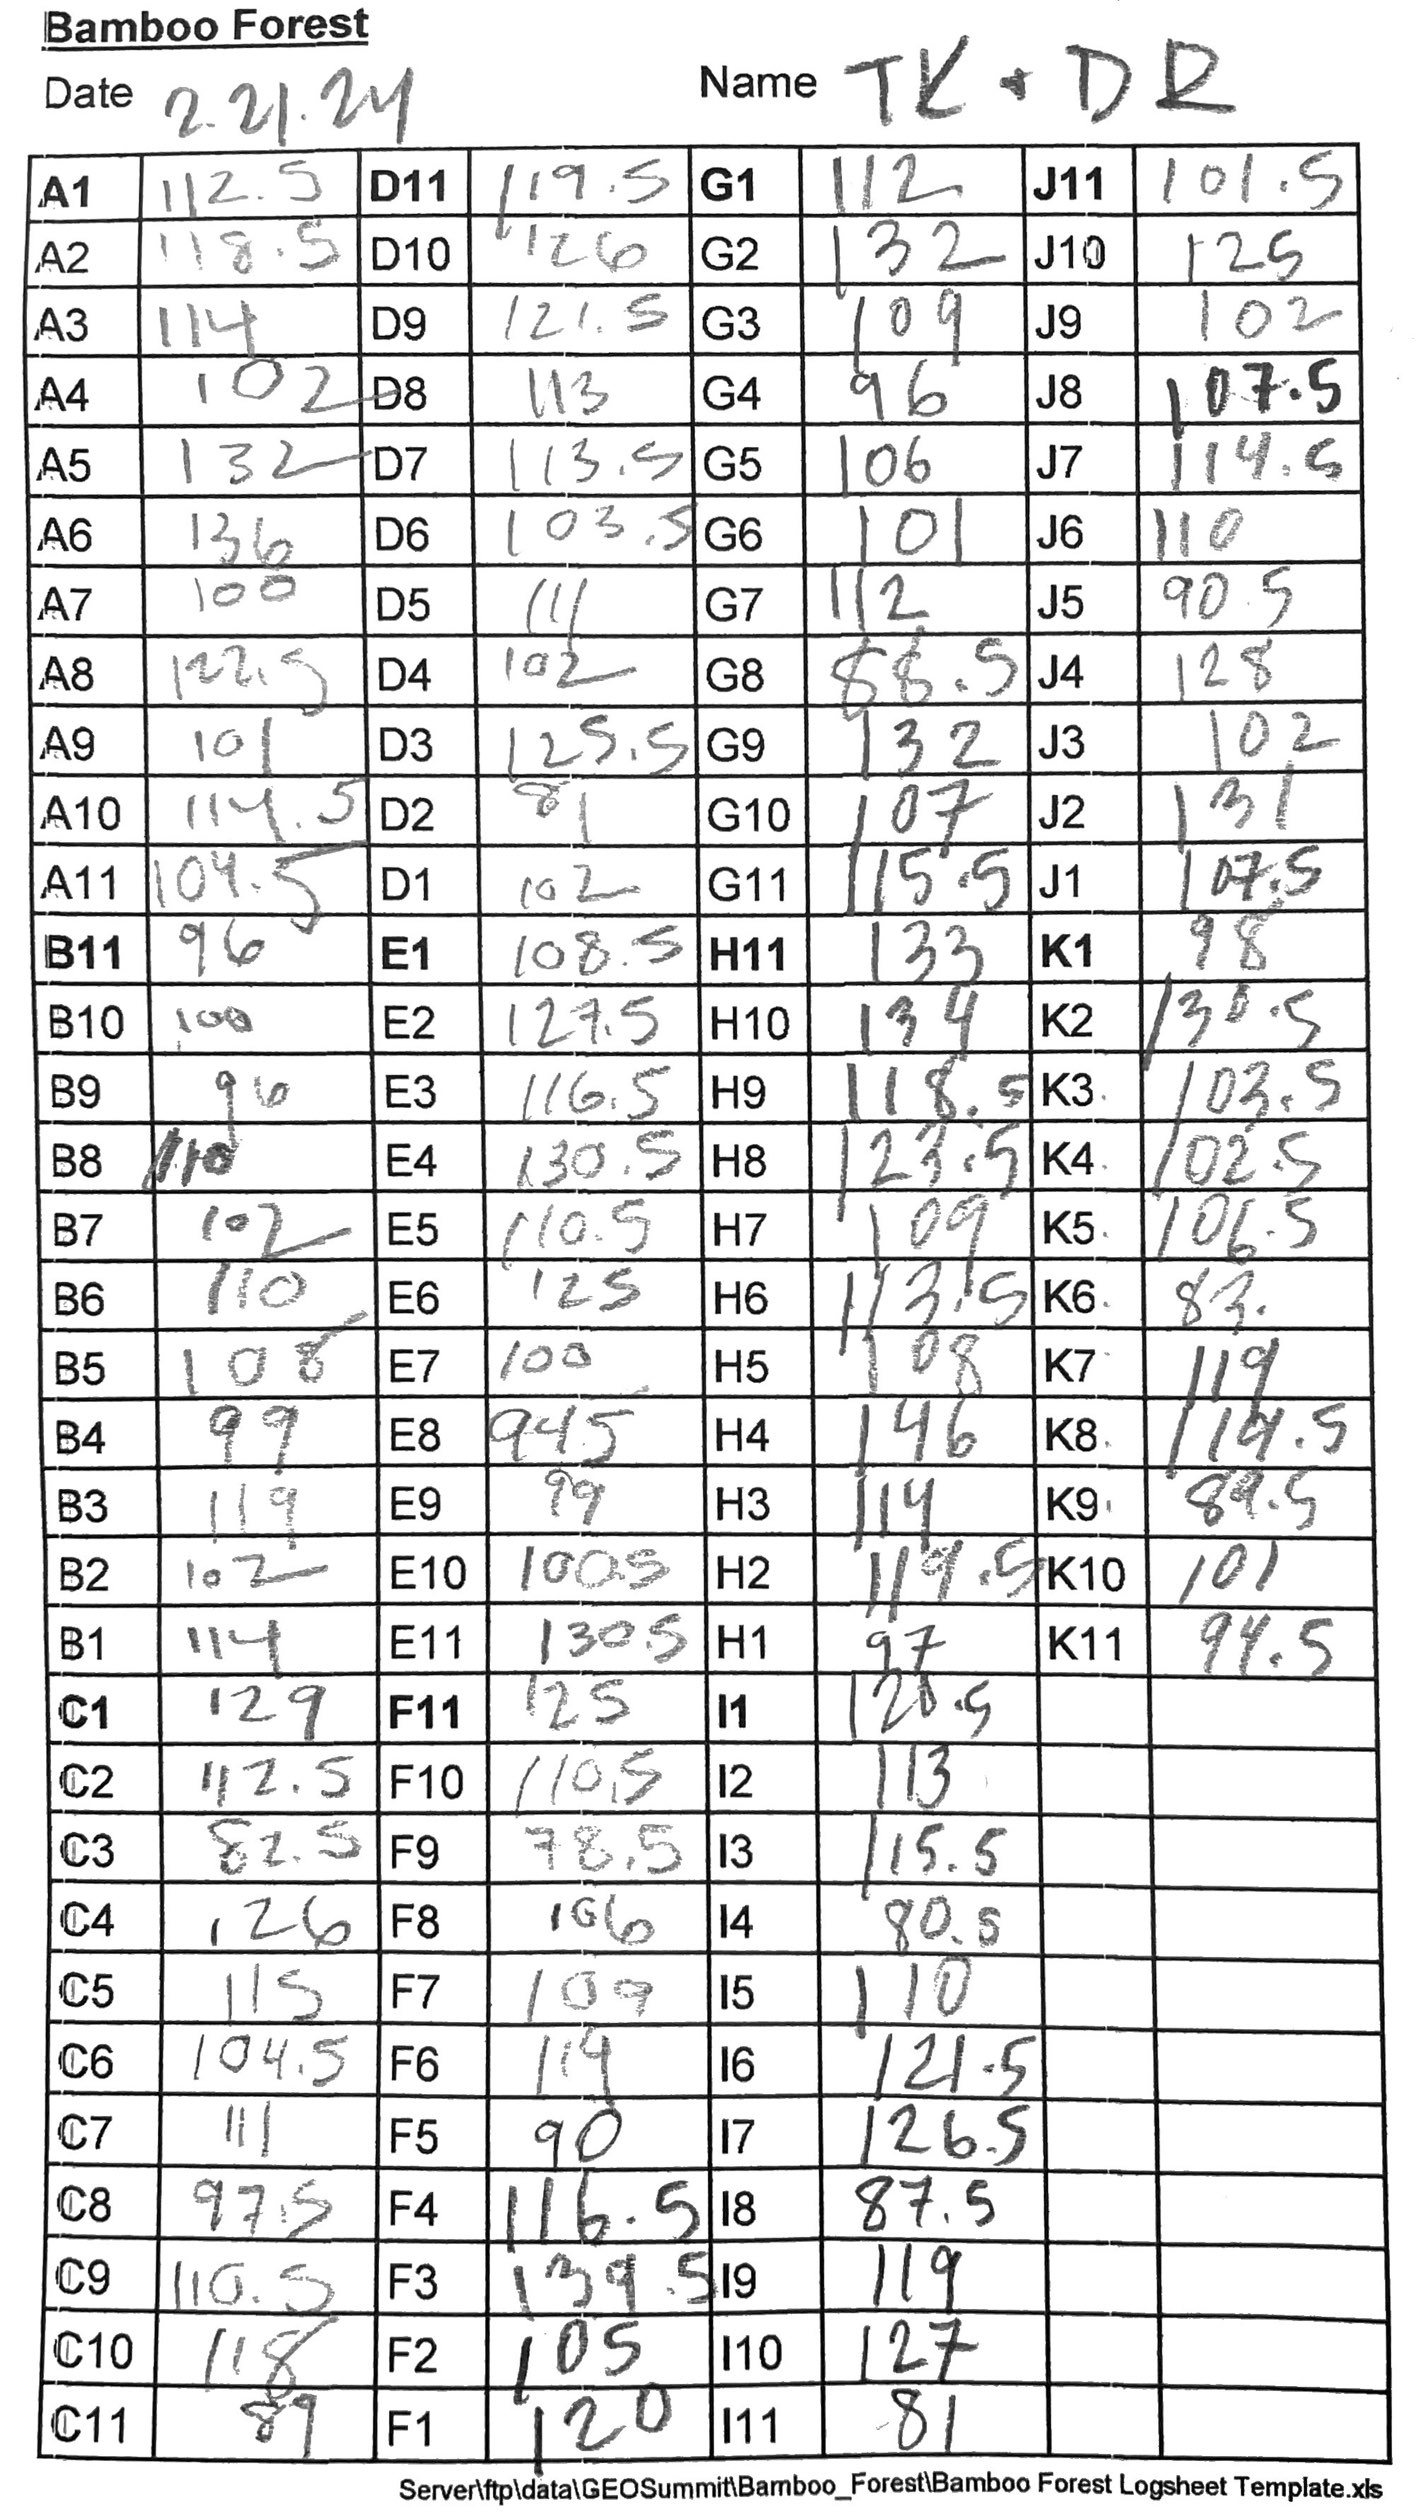 Bamboo Forest
Date 2.21.24 Name TK + DR
A1 112.5 D11 119.5 G1 112 J11 101.5
A2 118.5 D10 126 G2 132 J10 125
A3 114 D9 121.5 G3 109 J9 102
A4 102 D8 113 G4 96 J8 107.5
A5 132 D7 113.5 G5 106 J7 114.5
A6 136 D6 103.5 G6 101 J6 110
A7 100 D5 111 G7 112 J5 90.5
A8 122.5 D4 102 G8 88.5 J4 128
A9 101 D3 125.5 G9 132 J3 102
A10 114.5 D2 81 G10 107 J2 131
A11 104.5 D1 102 G11 115.5 J1 107.5
B11 96 E1 108.5 H11 133 K1 98
B10 100 E2 127.5 H10 134 K2 130.5
B9 96 E3 116.5 H9 118.5 K3 103.5
B8 110 E4 130.5 H8 123.5 K4 102.5
B7 102 E5 110.5 H7 109 K5 106.5
B6 110 E6 125 H6 113.5 K6 83.
B5 108 E7 100 H5 108 K7 119
B4 99 E8 94.5 H4 146 K8 114.5
B3 119 E9 99 H3 114 K9 89.5
B2 102 E10 100.5 H2 119.5 K10 101
B1 114 E11 130.5 H1 97 K11 94.5
C1 129 F11 125 I1 120.5
C2 112.5 F10 110.5 I2 113
C3 82.5 F9 78.5 I3 115.5
C4 126 F8 106 I4 80.5
C5 115 F7 109 I5 110
C6 104.5 F6 114 I6 121.5
C7 111 F5 90 I7 126.5
C8 97.5 F4 116.5 I8 87.5
C9 110.5 F3 139.5 I9 119
C10 118 F2 105 I10 127
C11 89 F1 120 I11 81
Server\ftp\data\GEOSummit\Bamboo_Forest\Bamboo Forest Logsheet Template.xls